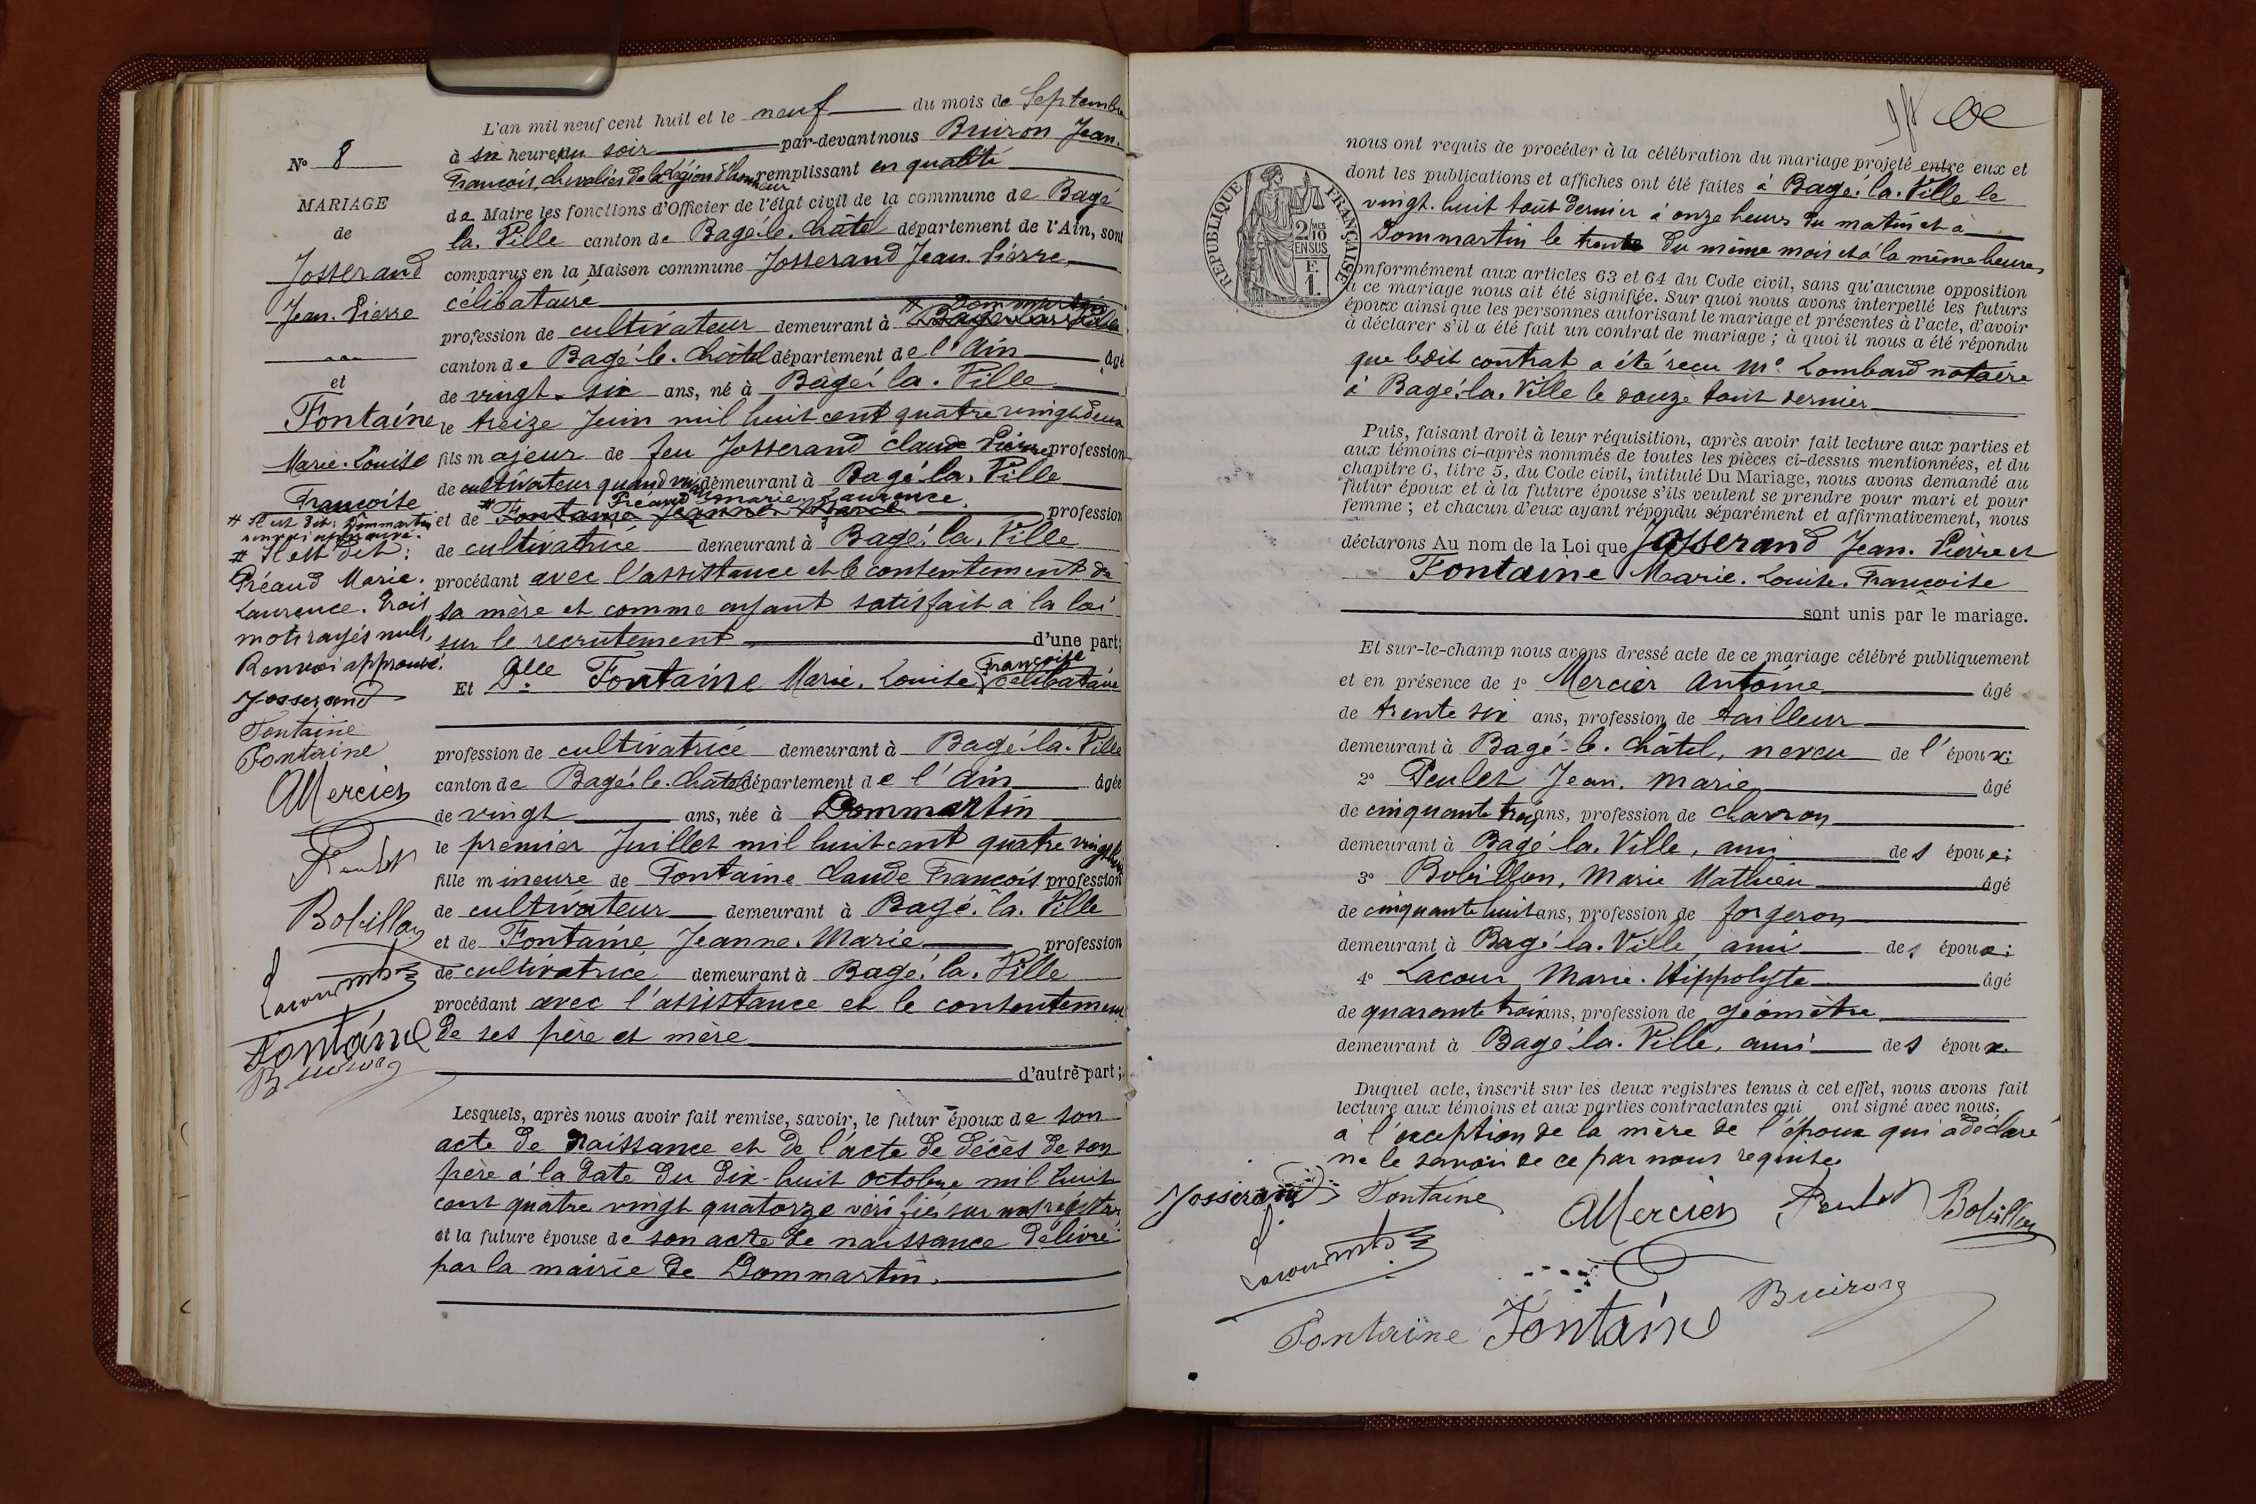 N° 8
MARIAGE
de
Josserand
Jean. Pierre
et
Fontaine
Marie. Louise
Françoise
# Il est dit: Dommartin
renvoi approuvé.
# Il est dit:
Préaud Marie.
Laurence. Trois
mots rayés nuls,
Renvoi approuvé.
Josserand
Fontaine
Fontaine
AMercier
Peulet
Bobillon
Lacour
Fontaine
Buiron
L'an mil neuf cent huit et le neuf du mois de Septembre
à six heures du soir par-devant nous Buiron Jean.
François, chevalier de la Légion d'Honneur remplissant en qualité
de Maire les fonctions d'Officier de l'état civil de la commune de Bagé
la. Ville canton de Bagé-le. Châtel département de l'Ain, sont
comparus en la Maison commune Josserand Jean. Pierre
célibataire
profession de cultivateur demeurant à # Dommartin Bagé-la-Ville
canton de Bagé-le. Châtel département de l'Ain âgé
de vingt-six ans, né à Bagé-la. Ville
le treize Juin mil huit cent quatre vingt deux
fils majeur de feu Josserand Claude Pierre profession
de cultivateur quand vivait demeurant à Bagé-la. Ville
et de # Préaud Marie. Laurence Fontaine Jeanne Marie profession
de cultivatrice demeurant à Bagé-la. Ville
procédant avec l'assistance et le consentement de
sa mère et comme ayant satisfait à la loi
sur le recrutement d'une part;
Et Dlle Fontaine Marie. Louise Françoise célibataire
profession de cultivatrice demeurant à Bagé-la. Ville
canton de Bagé-le. Châtel département de l'Ain âgée
de vingt ans, née à Dommartin
le premier Juillet mil huit cent quatre vingt huit
fille mineure de Fontaine Claude François profession
de cultivateur demeurant à Bagé. la. Ville
et de Fontaine Jeanne. Marie profession
de cultivatrice demeurant à Bagé. la. Ville
procédant avec l'assistance et le consentement
de ses père et mère
d'autre part;
Lesquels, après nous avoir fait remise, savoir, le futur époux de son
acte de naissance et de l'acte de décès de son
père à la date du dix-huit octobre mil huit
cent quatre vingt quatorze vérifiés sur nos régistres
et la future épouse de son acte de naissance délivré
par la mairie de Dommartin.
nous ont requis de procéder à la célébration du mariage projeté entre eux et
dont les publications et affiches ont été faites à Bagé-la. Ville le
vingt-huit août dernier à onze heures du matin et à
Dommartin le trente du même mois et à la même heure,
RÉPUBLIQUE FRANÇAISE
2/10
EN SUS
F.
1.
conformément aux articles 63 et 64 du Code civil, sans qu'aucune opposition
à ce mariage nous ait été signifiée. Sur quoi nous avons interpellé les futurs
époux ainsi que les personnes autorisant le mariage et présentes à l'acte, d'avoir
à déclarer s'il a été fait un contrat de mariage; à quoi il nous a été répondu
que ledit contrat a été reçu Me. Lombard notaire
à Bagé-la. Ville le douze août dernier
Puis, faisant droit à leur réquisition, après avoir fait lecture aux parties et
aux témoins ci-après nommés de toutes les pièces ci-dessus mentionnées, et du
chapitre 6, titre 5, du Code civil, intitulé Du Mariage, nous avons demandé au
futur époux et à la future épouse s'ils veulent se prendre pour mari et pour
femme; et chacun d'eux ayant répondu séparément et affirmativement, nous
déclarons Au nom de la Loi que Josserand Jean. Pierre et
Fontaine Marie. Louise. Françoise
sont unis par le mariage.
Et sur-le-champ nous avons dressé acte de ce mariage célébré publiquement
et en présence de 1° Mercier Antoine âgé
de trente six ans, profession de tailleur
demeurant à Bagé-le. Châtel, neveu de l'époux;
2° Peulet Jean. Marie âgé
de cinquante trois ans, profession de charron
demeurant à Bagé-la. Ville, ami des époux;
3° Bobillon, Marie Mathieu âgé
de cinquante huit ans, profession de forgeron
demeurant à Bagé-la. Ville, ami des époux;
4° Lacour Marie. Hippolyte âgé
de quarante trois ans, profession de géomètre
demeurant à Bagé-la. Ville, ami des époux.
Duquel acte, inscrit sur les deux registres tenus à cet effet, nous avons fait
lecture aux témoins et aux parties contractantes qui ont signé avec nous,
à l'exception de la mère de l'époux qui a déclaré
ne le savoir de ce par nous requise.
Josserand Fontaine AMercier Peulet Bobillon
Lacour
Fontaine Fontaine Buiron